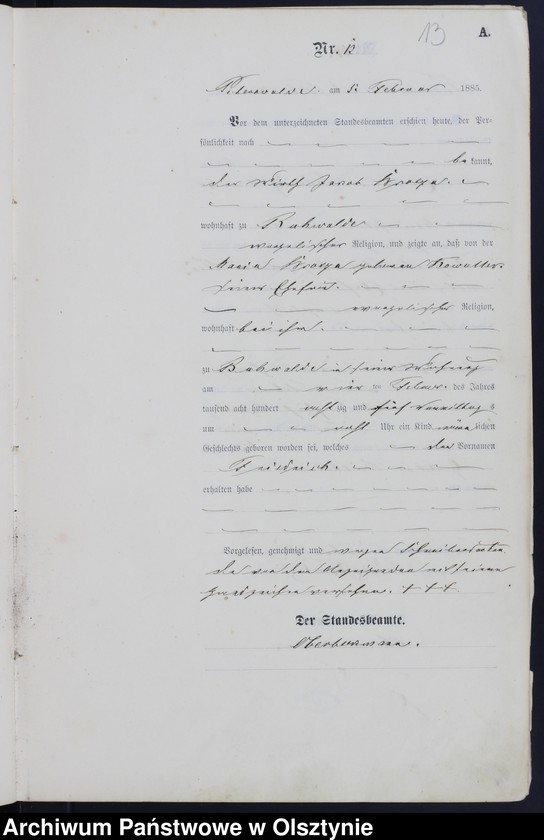 13
A.
Nr. 12
am 5. Februar 1885.
Vor dem unterzeichneten Standesbeamten erschien heute, der Per-
sönlichkeit nach
bekannt,
der Wirth Jacob
wohnhaft zu
evangelischer Religion, und zeigte an, daß von der
geborenen
seiner Ehefrau
evangelischer Religion,
wohnhaft bei ihm
zu in seiner Wohnung
am vier ten Februar des Jahres
tausend acht hundert achtzig und fünf Vormittags
um acht Uhr ein Kind männlichen
Geschlechts geboren worden sei, welches den Vornamen
Friedrich
erhalten habe
Vorgelesen, genehmigt und wegen
von dem mit seinem
Handzeichen versehen. + + +
Der Standesbeamte.
Archiwum Państwowe w Olsztynie